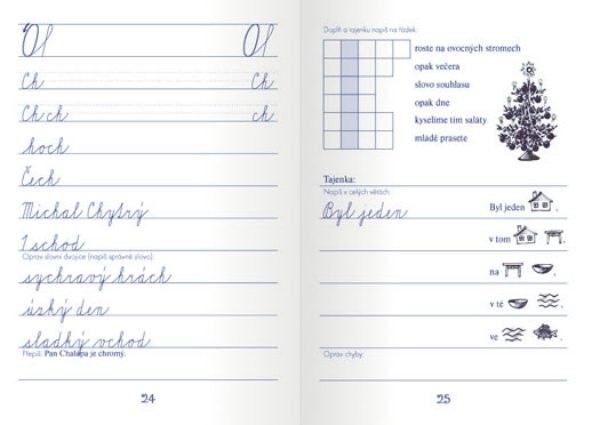 Ch Ch
Ch ch ch
hoch
Čech
Michal Chytrý
1 schod
Oprav slovní dvojice (napiš správné slovo):
sychravý hrách
úzký den
sladký vchod
Přepiš: Pan Chalupa je chromý.
24
Doplň a tajenku napiš na řádek:
roste na ovocných stromech
opak večera
slovo souhlasu
opak dne
kyselíme tím saláty
mládě prasete
Tajenka:
Napiš v celých větách:
Byl jeden Byl jeden .
v tom .
na .
v té .
ve .
Oprav chyby:
25